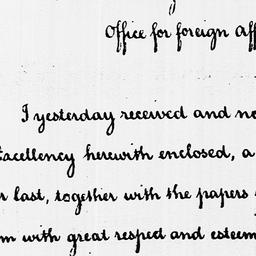 Office for foreign aff
I yesterday received and no
xcellency herewith enclosed, a
r last, together with the papers
m with great respect and esteem